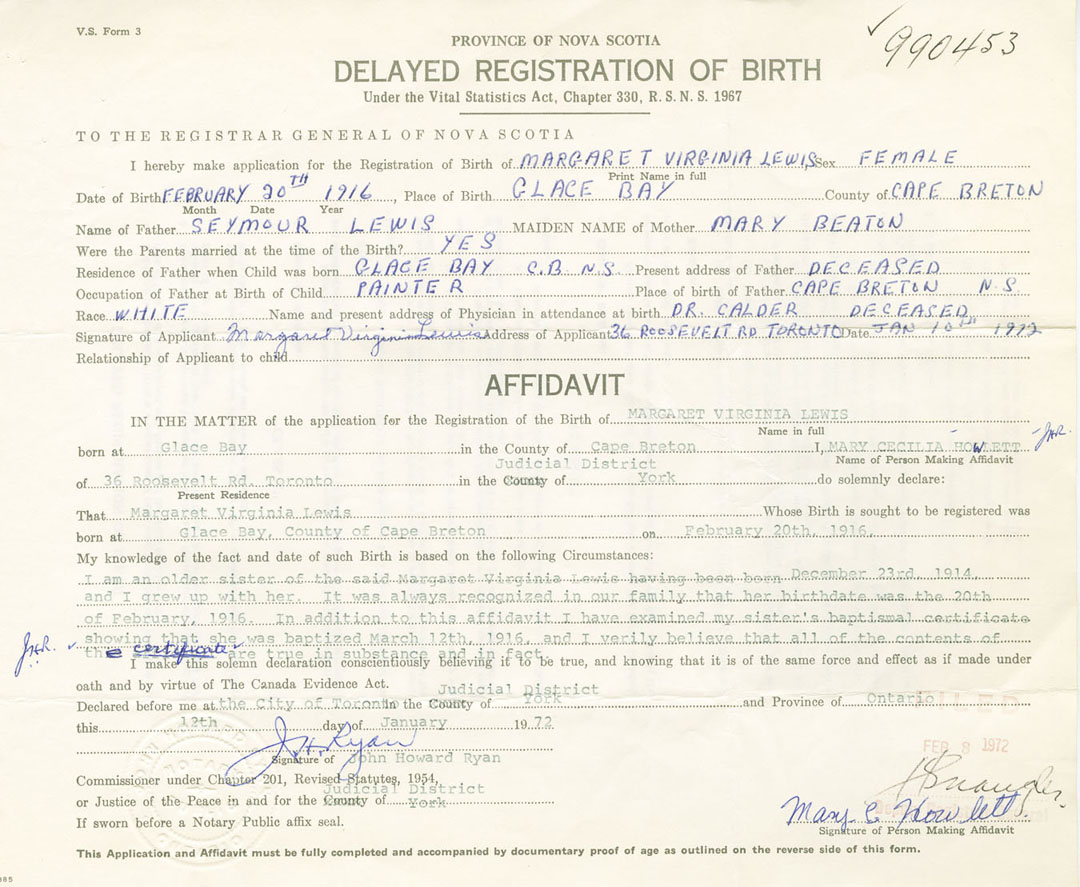 V.S. Form 3
990453
PROVINCE OF NOVA SCOTIA
DELAYED REGISTRATION OF BIRTH
Under the Vital Statistics Act, Chapter 330, R.S.N.S. 1967
TO THE REGISTRAR GENERAL OF NOVA SCOTIA
I hereby make application for the Registration of Birth of MARGARET VIRGINIA LEWIS Sex FEMALE
Print Name in full
Date of Birth FEBRUARY 20TH 1916, Place of Birth GLACE BAY County of CAPE BRETON
Month Date Year
Name of Father SEYMOUR LEWIS MAIDEN NAME of Mother MARY BEATON
Were the Parents married at the time of the Birth? YES
Residence of Father when Child was born GLACE BAY C.B. N.S. Present address of Father DECEASED
Occupation of Father at Birth of Child PAINTER Place of birth of Father CAPE BRETON N.S
Race WHITE Name and present address of Physician in attendance at birth DR. CALDER DECEASED
Signature of Applicant Margaret Virginia Lewis Address of Applicant 36 ROOSEVELT RD TORONTO Date JAN 10TH 1972
Relationship of Applicant to child
AFFIDAVIT
IN THE MATTER of the application for the Registration of the Birth of MARGARET VIRGINIA LEWIS
Name in full
born at Glace Bay in the County of Cape Breton I, MARY CECILIA HOWLETT JHR.
Name of Person Making Affidavit
Judicial District
of 36 Roosevelt Rd. Toronto in the County of York do solemnly declare:
Present Residence
That Margaret Virginia Lewis Whose Birth is sought to be registered was
born at Glace Bay, County of Cape Breton on February 20th, 1916.
My knowledge of the fact and date of such Birth is based on the following Circumstances:
I am an older sister of the said Margaret Virginia Lewis having been born December 23rd, 1914,
and I grew up with her. It was always recognized in our family that her birthdate was the 20th
of February, 1916. In addition to this affidavit I have examined my sister's baptismal certificate
showing that she was baptized March 12th, 1916, and I verily believe that all of the contents of
JHR. the certificate are true in substance and in fact.
I make this solemn declaration conscientiously believing it to be true, and knowing that it is of the same force and effect as if made under
oath and by virtue of The Canada Evidence Act.
Judicial District
Declared before me at the City of Toronto in the County of York and Province of Ontario
this 12th day of January 1972
FEB 8 1972
J.H. Ryan
Signature of John Howard Ryan
Commissioner under Chapter 201, Revised Statutes, 1954,
Judicial District
or Justice of the Peace in and for the County of York
Mary C Howlett
If sworn before a Notary Public affix seal.
Signature of Person Making Affidavit
This Application and Affidavit must be fully completed and accompanied by documentary proof of age as outlined on the reverse side of this form.